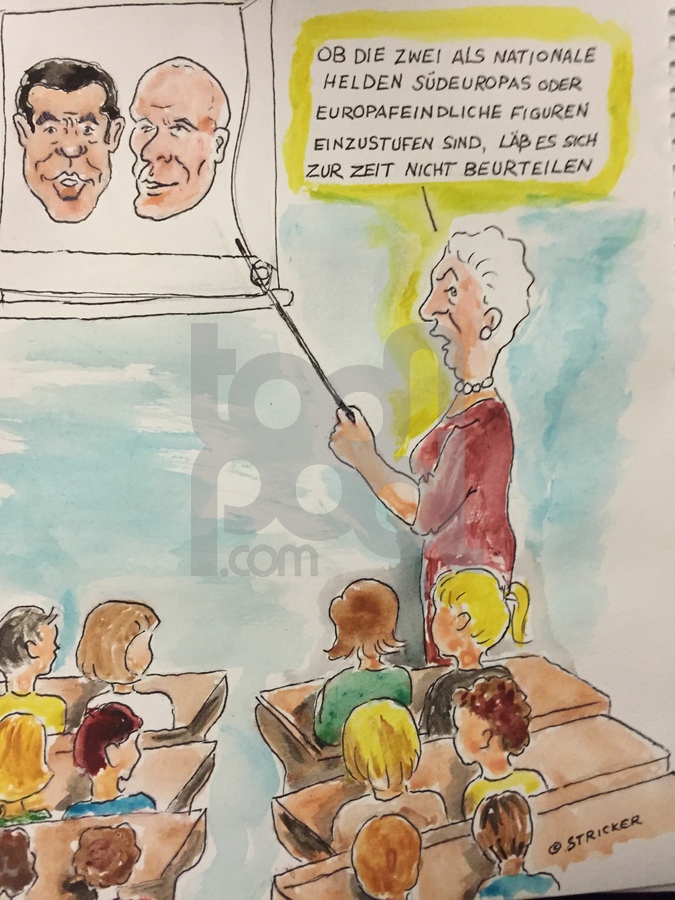 OB DIE ZWEI ALS NATIONALE
HELDEN SÜDEUROPAS ODER
EUROPAFEINDLICHE FIGUREN
EINZUSTUFEN SIND, LÄßES SICH
ZUR ZEIT NICHT BEURTEILEN
toonpool
.com
© STRICKER